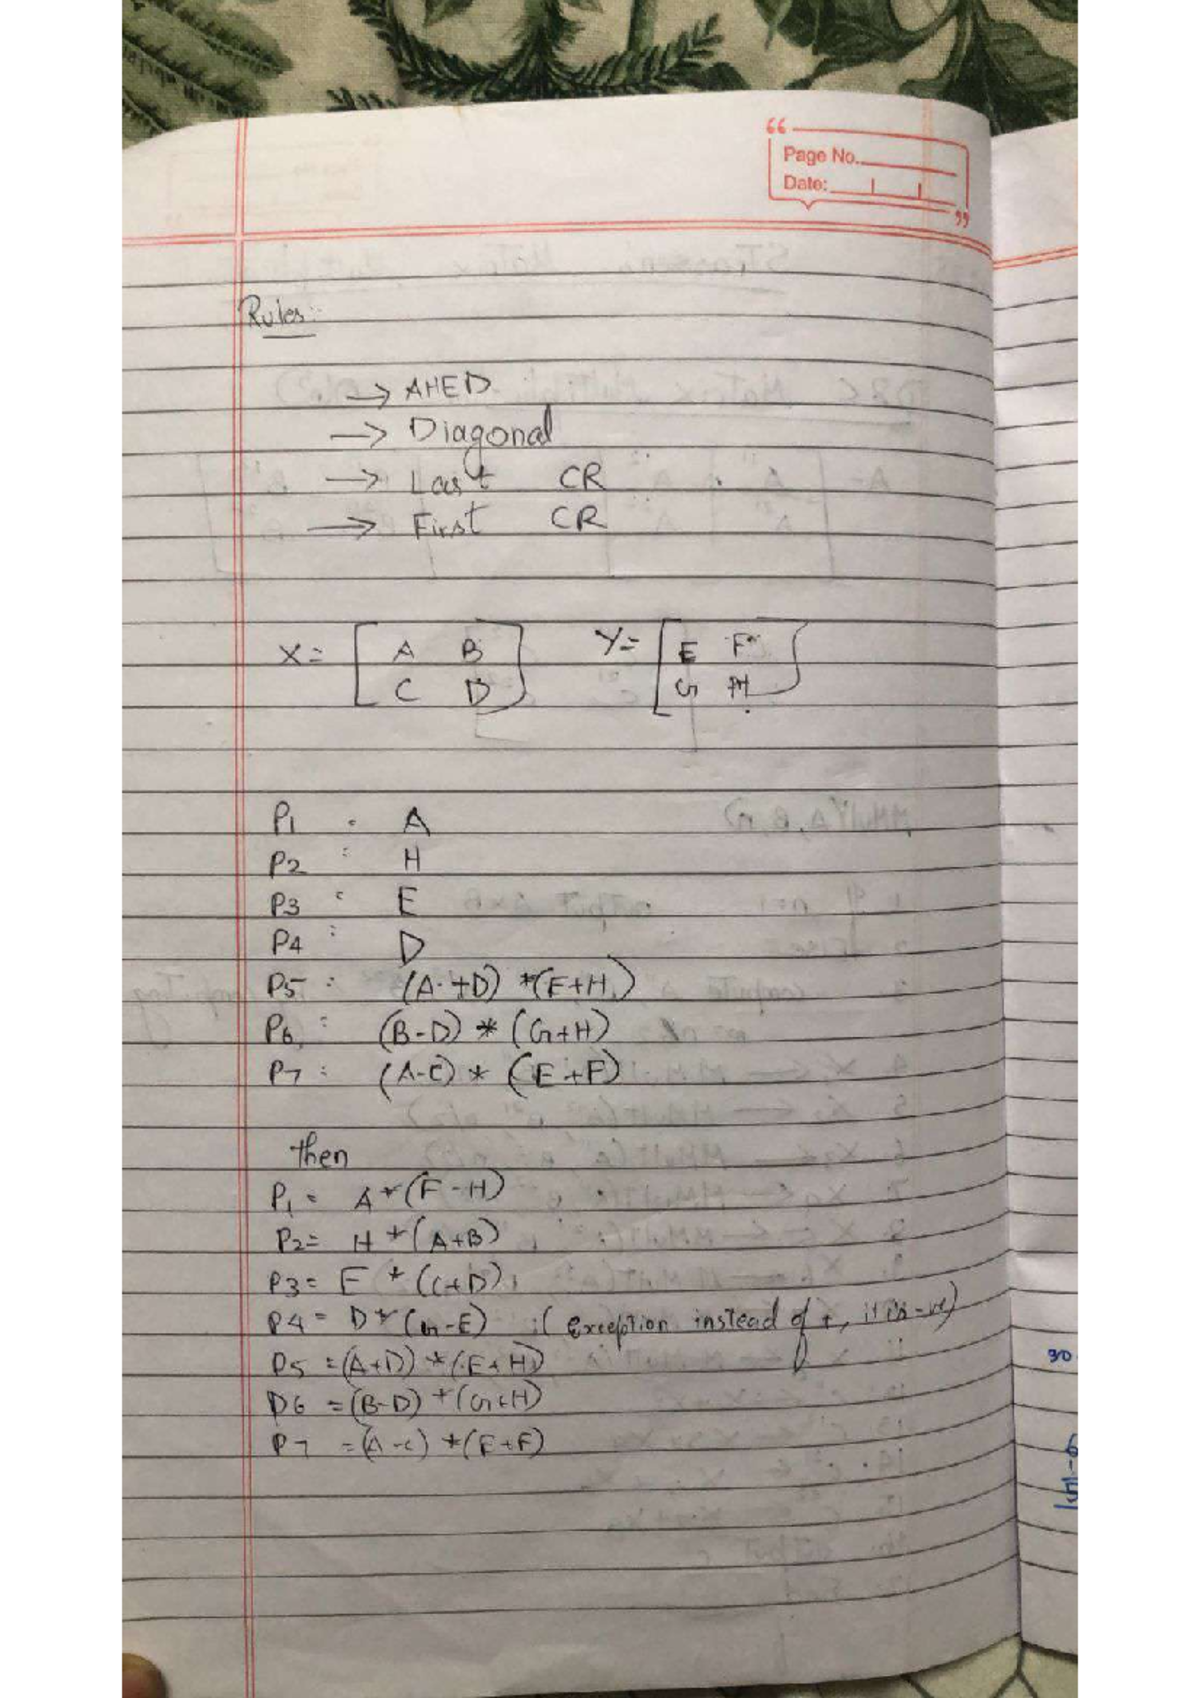 Page No.
Date:
Rules:
→ AHED
→ Diagonal
→ Last CR
→ First CR
X = [ A B Y = [ E F
C D ] G H ]
P1 : A
P2 : H
P3 : E
P4 : D
P5 : (A+D) *(E+H)
P6 : (B-D) * (G+H)
P7 : (A-C) * (E+F)
then
P1 = A*(F-H)
P2 = H*(A+B)
P3 = E*(C+D)
P4 = D*(G-E) :( Exception instead of +, it is -ve)
P5 = (A+D) *(E+H)
P6 = (B-D) *(G+H)
P7 = (A-C) *(E+F)
30